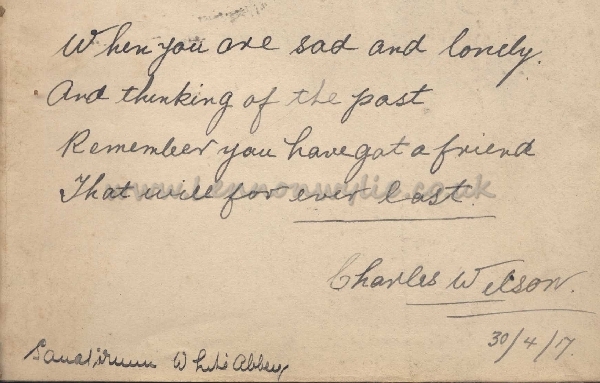 When you are sad and lonely.
And thinking of the past
Remember you have got a friend
That will for ever last
www.lennonwylie.co.uk
Charles Wilson.
30/4/17.
Sanatirum White Abbey